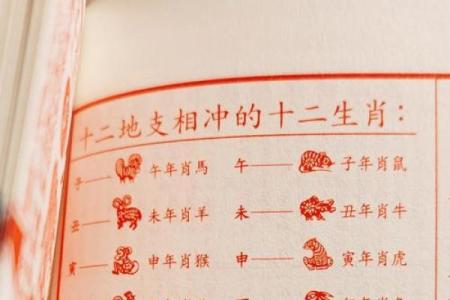 十二地支相冲的十二生肖：
子——午年肖馬 午——子年肖鼠
丑——未年肖羊 未——丑年肖牛
寅——申年肖猴 申——寅年肖虎